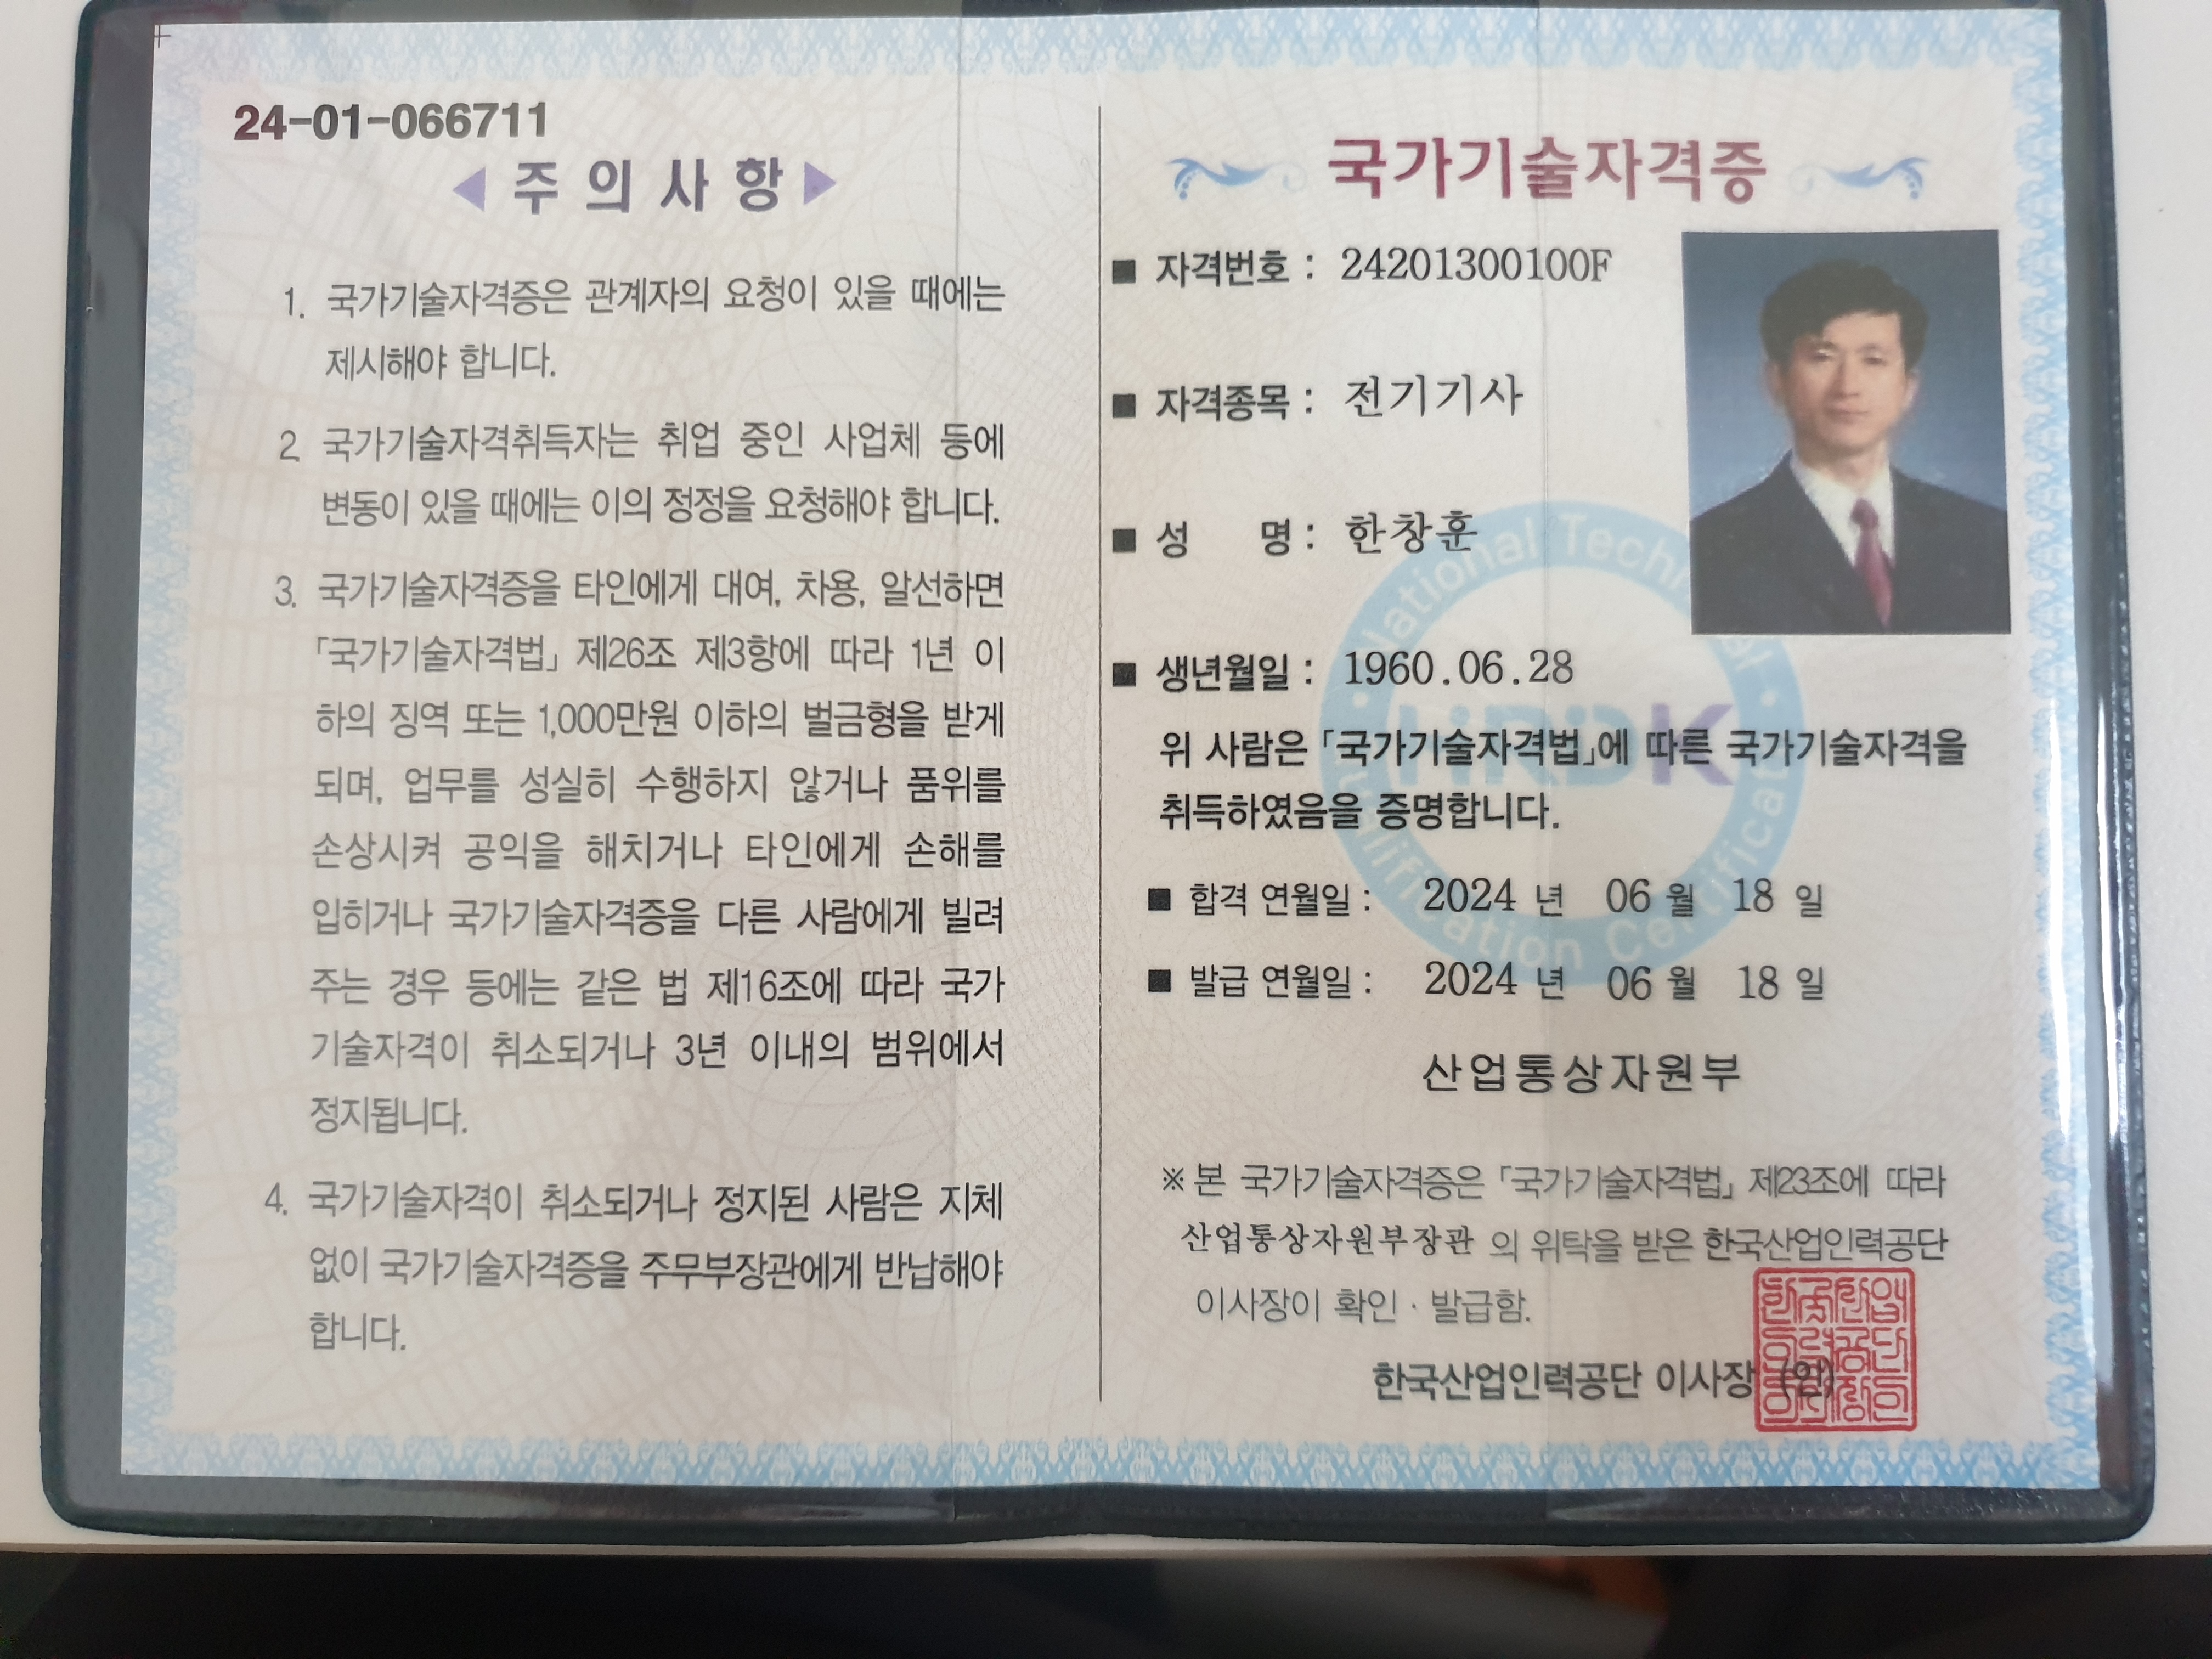 24-01-066711
◀ 주 의 사 항 ▶
1. 국가기술자격증은 관계자의 요청이 있을 때에는
제시해야 합니다.
2. 국가기술자격취득자는 취업 중인 사업체 등에
변동이 있을 때에는 이의 정정을 요청해야 합니다.
3. 국가기술자격증을 타인에게 대여, 차용, 알선하면
「국가기술자격법」 제26조 제3항에 따라 1년 이
하의 징역 또는 1,000만원 이하의 벌금형을 받게
되며, 업무를 성실히 수행하지 않거나 품위를
손상시켜 공익을 해치거나 타인에게 손해를
입히거나 국가기술자격증을 다른 사람에게 빌려
주는 경우 등에는 같은 법 제16조에 따라 국가
기술자격이 취소되거나 3년 이내의 범위에서
정지됩니다.
4. 국가기술자격이 취소되거나 정지된 사람은 지체
없이 국가기술자격증을 주무부장관에게 반납해야
합니다.
국가기술자격증
■ 자격번호 : 24201300100F
■ 자격종목 : 전기기사
■ 성 명 : 한창훈
■ 생년월일 : 1960.06.28
위 사람은 「국가기술자격법」에 따른 국가기술자격을
취득하였음을 증명합니다.
■ 합격 연월일 : 2024 년 06 월 18 일
■ 발급 연월일 : 2024 년 06 월 18 일
산업통상자원부
※ 본 국가기술자격증은 「국가기술자격법」 제23조에 따라
산업통상자원부장관 의 위탁을 받은 한국산업인력공단
이사장이 확인 · 발급함.
한국산업인력공단 이사장 (인)
HRDK
National Techn
lification Certificat